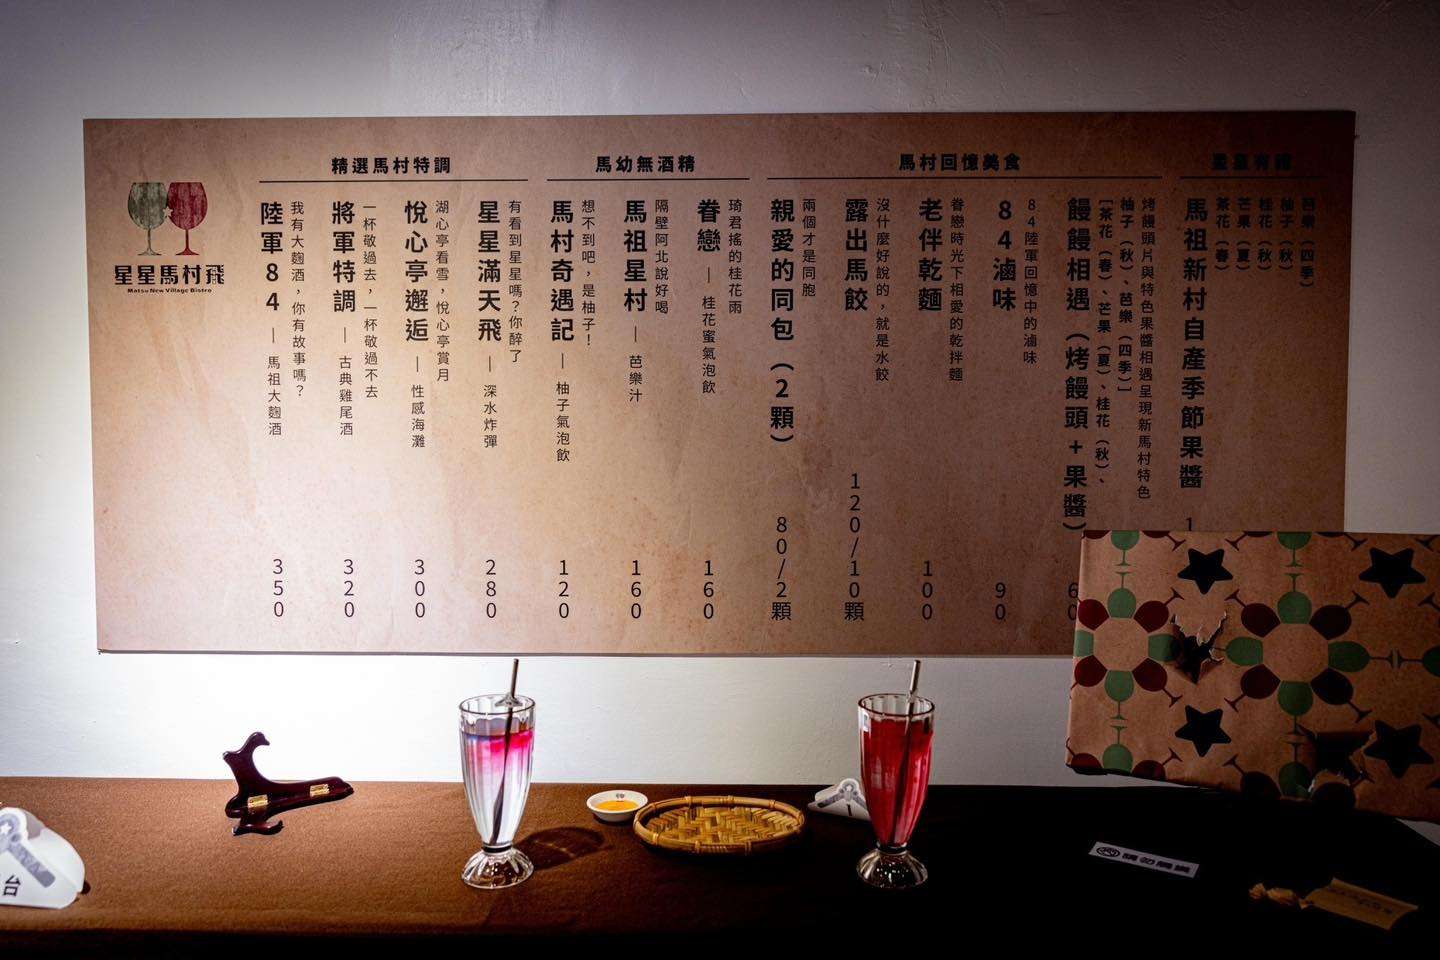 星星馬村飛
Matsu New Village Bistro
精選馬村特調
陸軍84 — 馬祖大麴酒
我有大麴酒，你有故事嗎？
350
將軍特調 — 古典雞尾酒
一杯敬過去，一杯敬過不去
320
悅心亭邂逅 — 性感海灘
湖心亭看雪，悅心亭賞月
300
星星滿天飛 — 深水炸彈
有看到星星嗎？你醉了
280
馬幼無酒精
馬村奇遇記 — 柚子氣泡飲
想不到吧，是柚子！
120
馬祖星村 — 芭樂汁
隔壁阿北說好喝
160
眷戀 — 桂花蜜氣泡飲
琦君搖的桂花雨
160
馬村回憶美食
親愛的同包（2顆）
兩個才是同胞
80/2顆
露出馬餃
沒什麼好說的，就是水餃
120/10顆
老伴乾麵
眷戀時光下相愛的乾拌麵
100
84滷味
84陸軍回憶中的滷味
90
饅饅相遇（烤饅頭+果醬）
[茶花（春）、芒果（夏）、桂花（秋）、
柚子（秋）、芭樂（四季）]
烤饅頭片與特色果醬相遇呈現新馬村特色
60
馬祖新村自產季節果醬
茶花（春）
芒果（夏）
桂花（秋）
柚子（秋）
芭樂（四季）
1
台
請勿觸摸